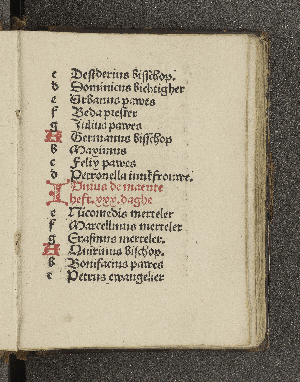 c Desiderius bisschop.
d Dominicus bichtigher
e Urbanus pawes
f Beda prester
g Julius pawes
A Germanus bisschop
b Maximus
c Felix pawes
d Petronella iunckfrouwe.
Junius de maente
heft .xxx. daghe
e Nicomedis merteler
f Marcellinus merteler
g Erasmus merteler.
A Quirinus bischop.
b Bonifacius pawes
c Petrus ewangelier